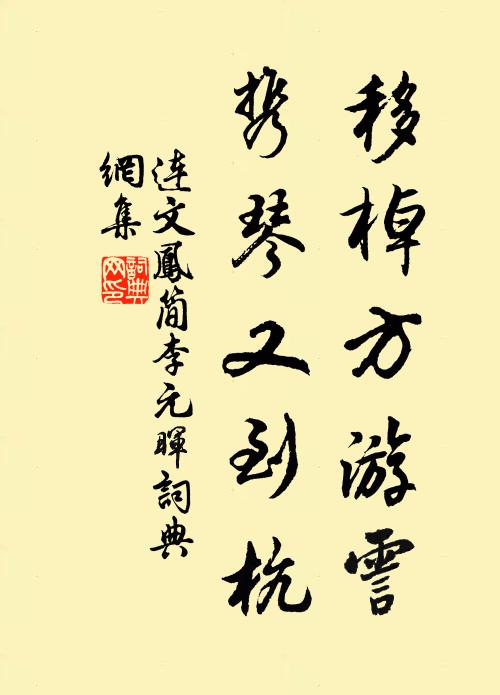 移棹方游霅
携琴又到杭
连文鳳简李元暉詞典
網集
詞典
网印